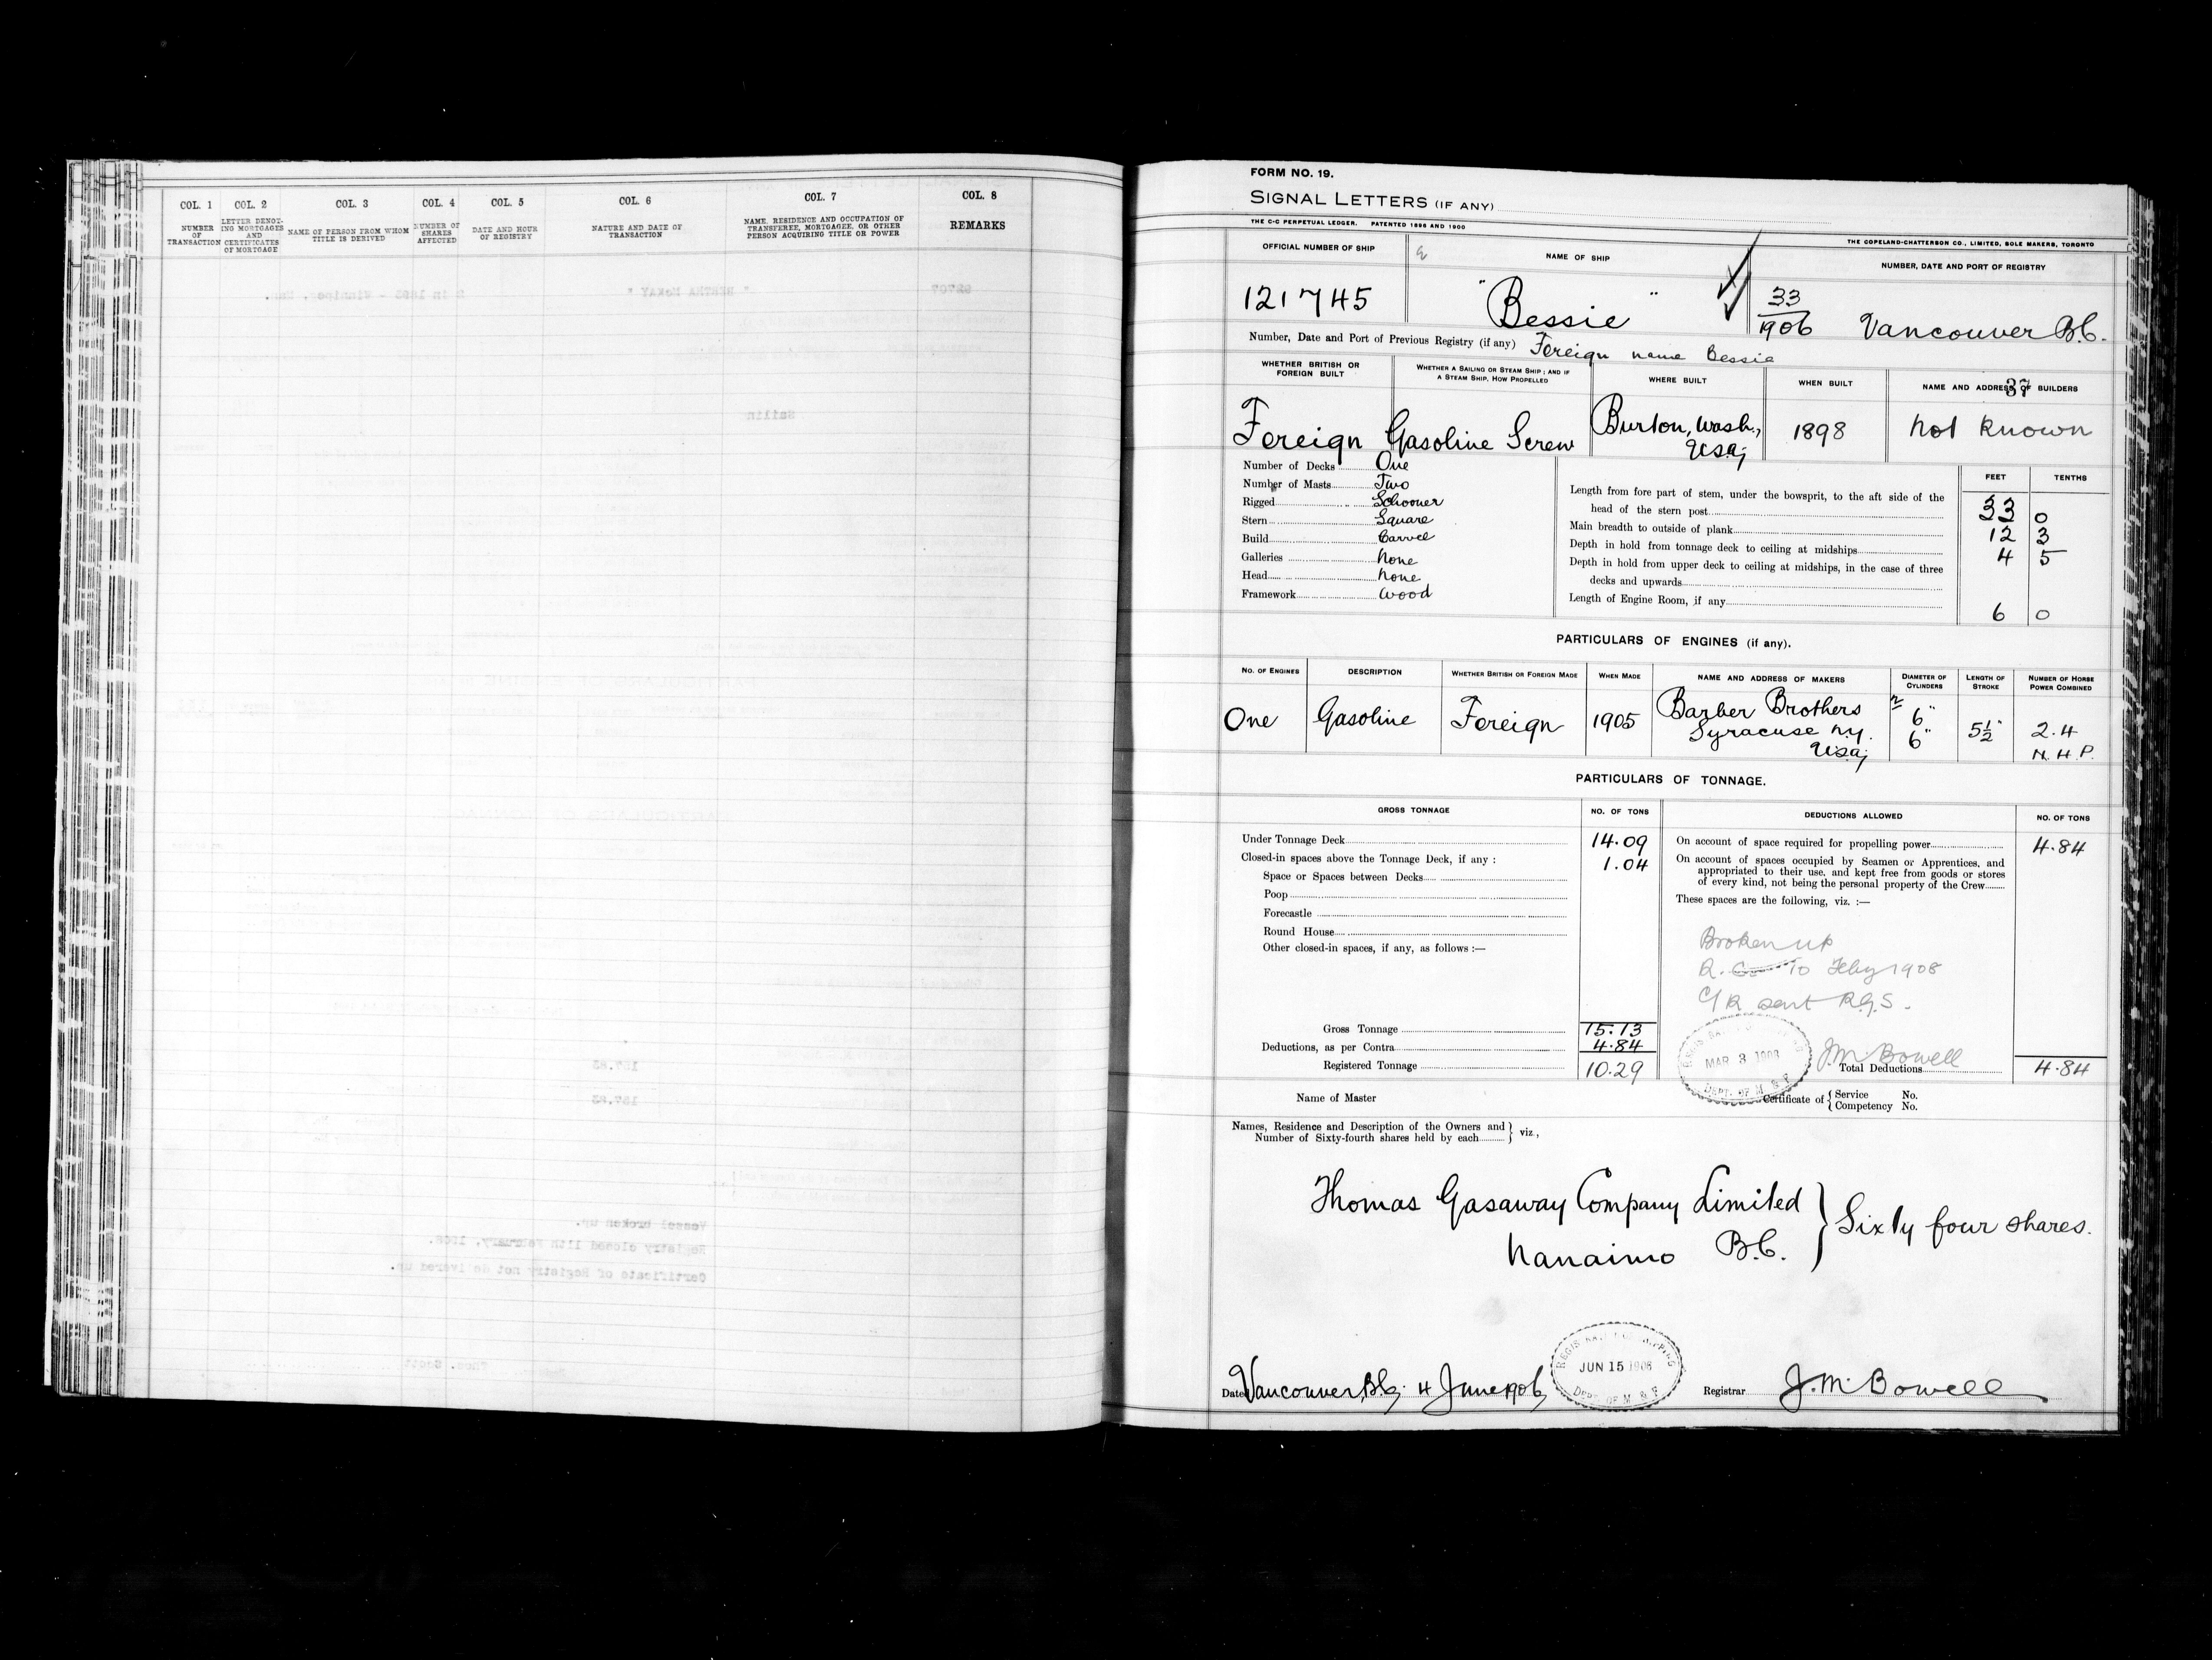 COL. 1 COL. 2 COL. 3 COL. 4 COL. 5 COL. 6 COL. 7 COL. 8
NUMBER OF TRANSACTION
LETTER DENOTING MORTGAGES AND CERTIFICATES OF MORTGAGE
NAME OF PERSON FROM WHOM TITLE IS DERIVED
NUMBER OF SHARES AFFECTED
DATE AND HOUR OF REGISTRY
NATURE AND DATE OF TRANSACTION
NAME, RESIDENCE AND OCCUPATION OF TRANSFEREE, MORTGAGEE, OR OTHER PERSON ACQUIRING TITLE OR POWER
REMARKS
FORM NO. 19.
SIGNAL LETTERS (IF ANY)
THE C-C PERPETUAL LEDGER. PATENTED 1896 AND 1900
THE COPELAND-CHATTERSON CO., LIMITED, SOLE MAKERS, TORONTO
OFFICIAL NUMBER OF SHIP NAME OF SHIP NUMBER, DATE AND PORT OF REGISTRY
121745 "Bessie" 33/1906 Vancouver B.C.
Number, Date and Port of Previous Registry (if any) Foreign name Bessie
WHETHER BRITISH OR FOREIGN BUILT
WHETHER A SAILING OR STEAM SHIP; AND IF A STEAM SHIP, HOW PROPELLED
WHERE BUILT WHEN BUILT NAME AND ADDRESS OF BUILDERS
37
Foreign Gasoline Screw Burton, Wash., 1898 not known
USA;
Number of Decks One
Number of Masts Two
Rigged Schooner
Stern Square
Build Carvel
Galleries None
Head None
Framework Wood
FEET TENTHS
Length from fore part of stem, under the bowsprit, to the aft side of the
head of the stern post 33 0
Main breadth to outside of plank 12 3
Depth in hold from tonnage deck to ceiling at midships 4 5
Depth in hold from upper deck to ceiling at midships, in the case of three
decks and upwards
Length of Engine Room, if any 6 0
PARTICULARS OF ENGINES (if any).
No. of Engines DESCRIPTION Whether British or Foreign Made When Made NAME AND ADDRESS OF MAKERS Diameter of Cylinders Length of Stroke Number of Horse Power Combined
One Gasoline Foreign 1905 Barber Brothers 6" 5½" 2.4
Syracuse N.Y. 6" N.H.P.
USA;
PARTICULARS OF TONNAGE.
GROSS TONNAGE NO. OF TONS DEDUCTIONS ALLOWED NO. OF TONS
Under Tonnage Deck 14.09
Closed-in spaces above the Tonnage Deck, if any : 1.04
Space or Spaces between Decks
Poop
Forecastle
Round House
Other closed-in spaces, if any, as follows :—
Gross Tonnage 15.13
Deductions, as per Contra 4.84
Registered Tonnage 10.29
On account of space required for propelling power 4.84
On account of spaces occupied by Seamen or Apprentices, and
appropriated to their use, and kept free from goods or stores
of every kind, not being the personal property of the Crew
These spaces are the following, viz. :—
Broken up
R. 10 Feby 1908
C/R sent R.G.S.
MAR 3 1908
DEPT. OF M & F
J.M. Bowell
Total Deductions 4.84
Name of Master
Certificate of { Service No.
Competency No.
Names, Residence and Description of the Owners and
Number of Sixty-fourth shares held by each } viz.,
Thomas Gasaway Company Limited } Sixty four shares.
Nanaimo B.C.
Dated Vancouver, B.C. 4 June 1906
REGISTRAR OF SHIPPING
JUN 15 1906
DEPT. OF M & F
Registrar J.M. Bowell